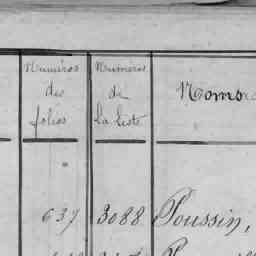 Numéros Numéros
des de Noms
folios la liste
637 3088 Poussin,